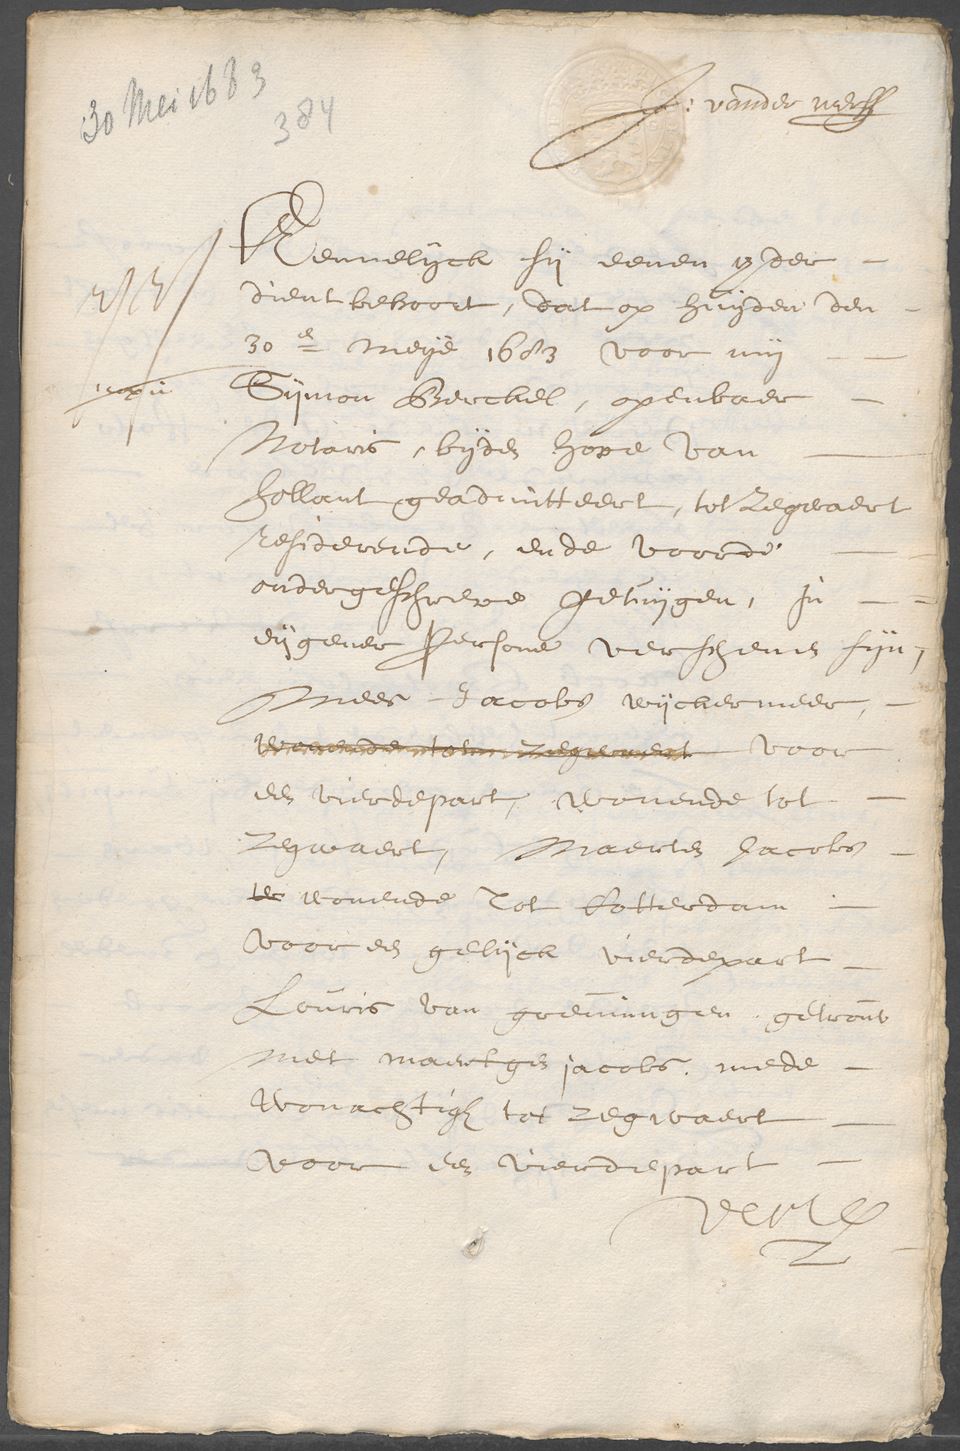 30 Mei 1683
384
J: vander werff
Kennelyck sij eenen yder
dient behoort, dat op huijden den
30e meije 1683 voor mij
Sijmon Berckel, openbaer
Notaris, bijden hove van
hollant geadmitteert, tot Zegwaert
residerende, ende voorde
ondergeschreve getuijgen, in
eijgener persone verschenen sijn,
Mees Jacobs wijckermeer,
wonende tot Zegwaert voor
een vierdepart, wonende tot
Zegwaert, Maerten Jacobs
te wonende tot Rotterdam
voor een gelijck vierdepart
Louris van groeningen getrout
met maertgen jacobs. mede
wonachtigh tot Zegwaert
voor een vierdepart